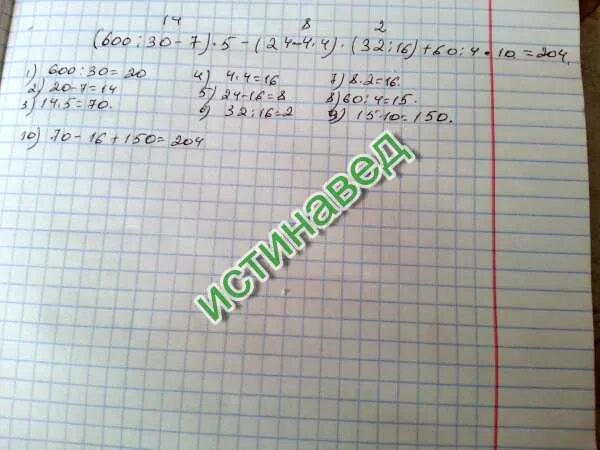 14 8 2
(600:30-7)·5-(24-4·4)·(32:16)+60:4·10=204.
1) 600:30=20 4) 4·4=16 7) 8·2=16.
2) 20-7=14 5) 24-16=8 8) 60:4=15.
3) 14·5=70. 6) 32:16=2 9) 15·10=150.
10) 70-16+150=204
истинавед